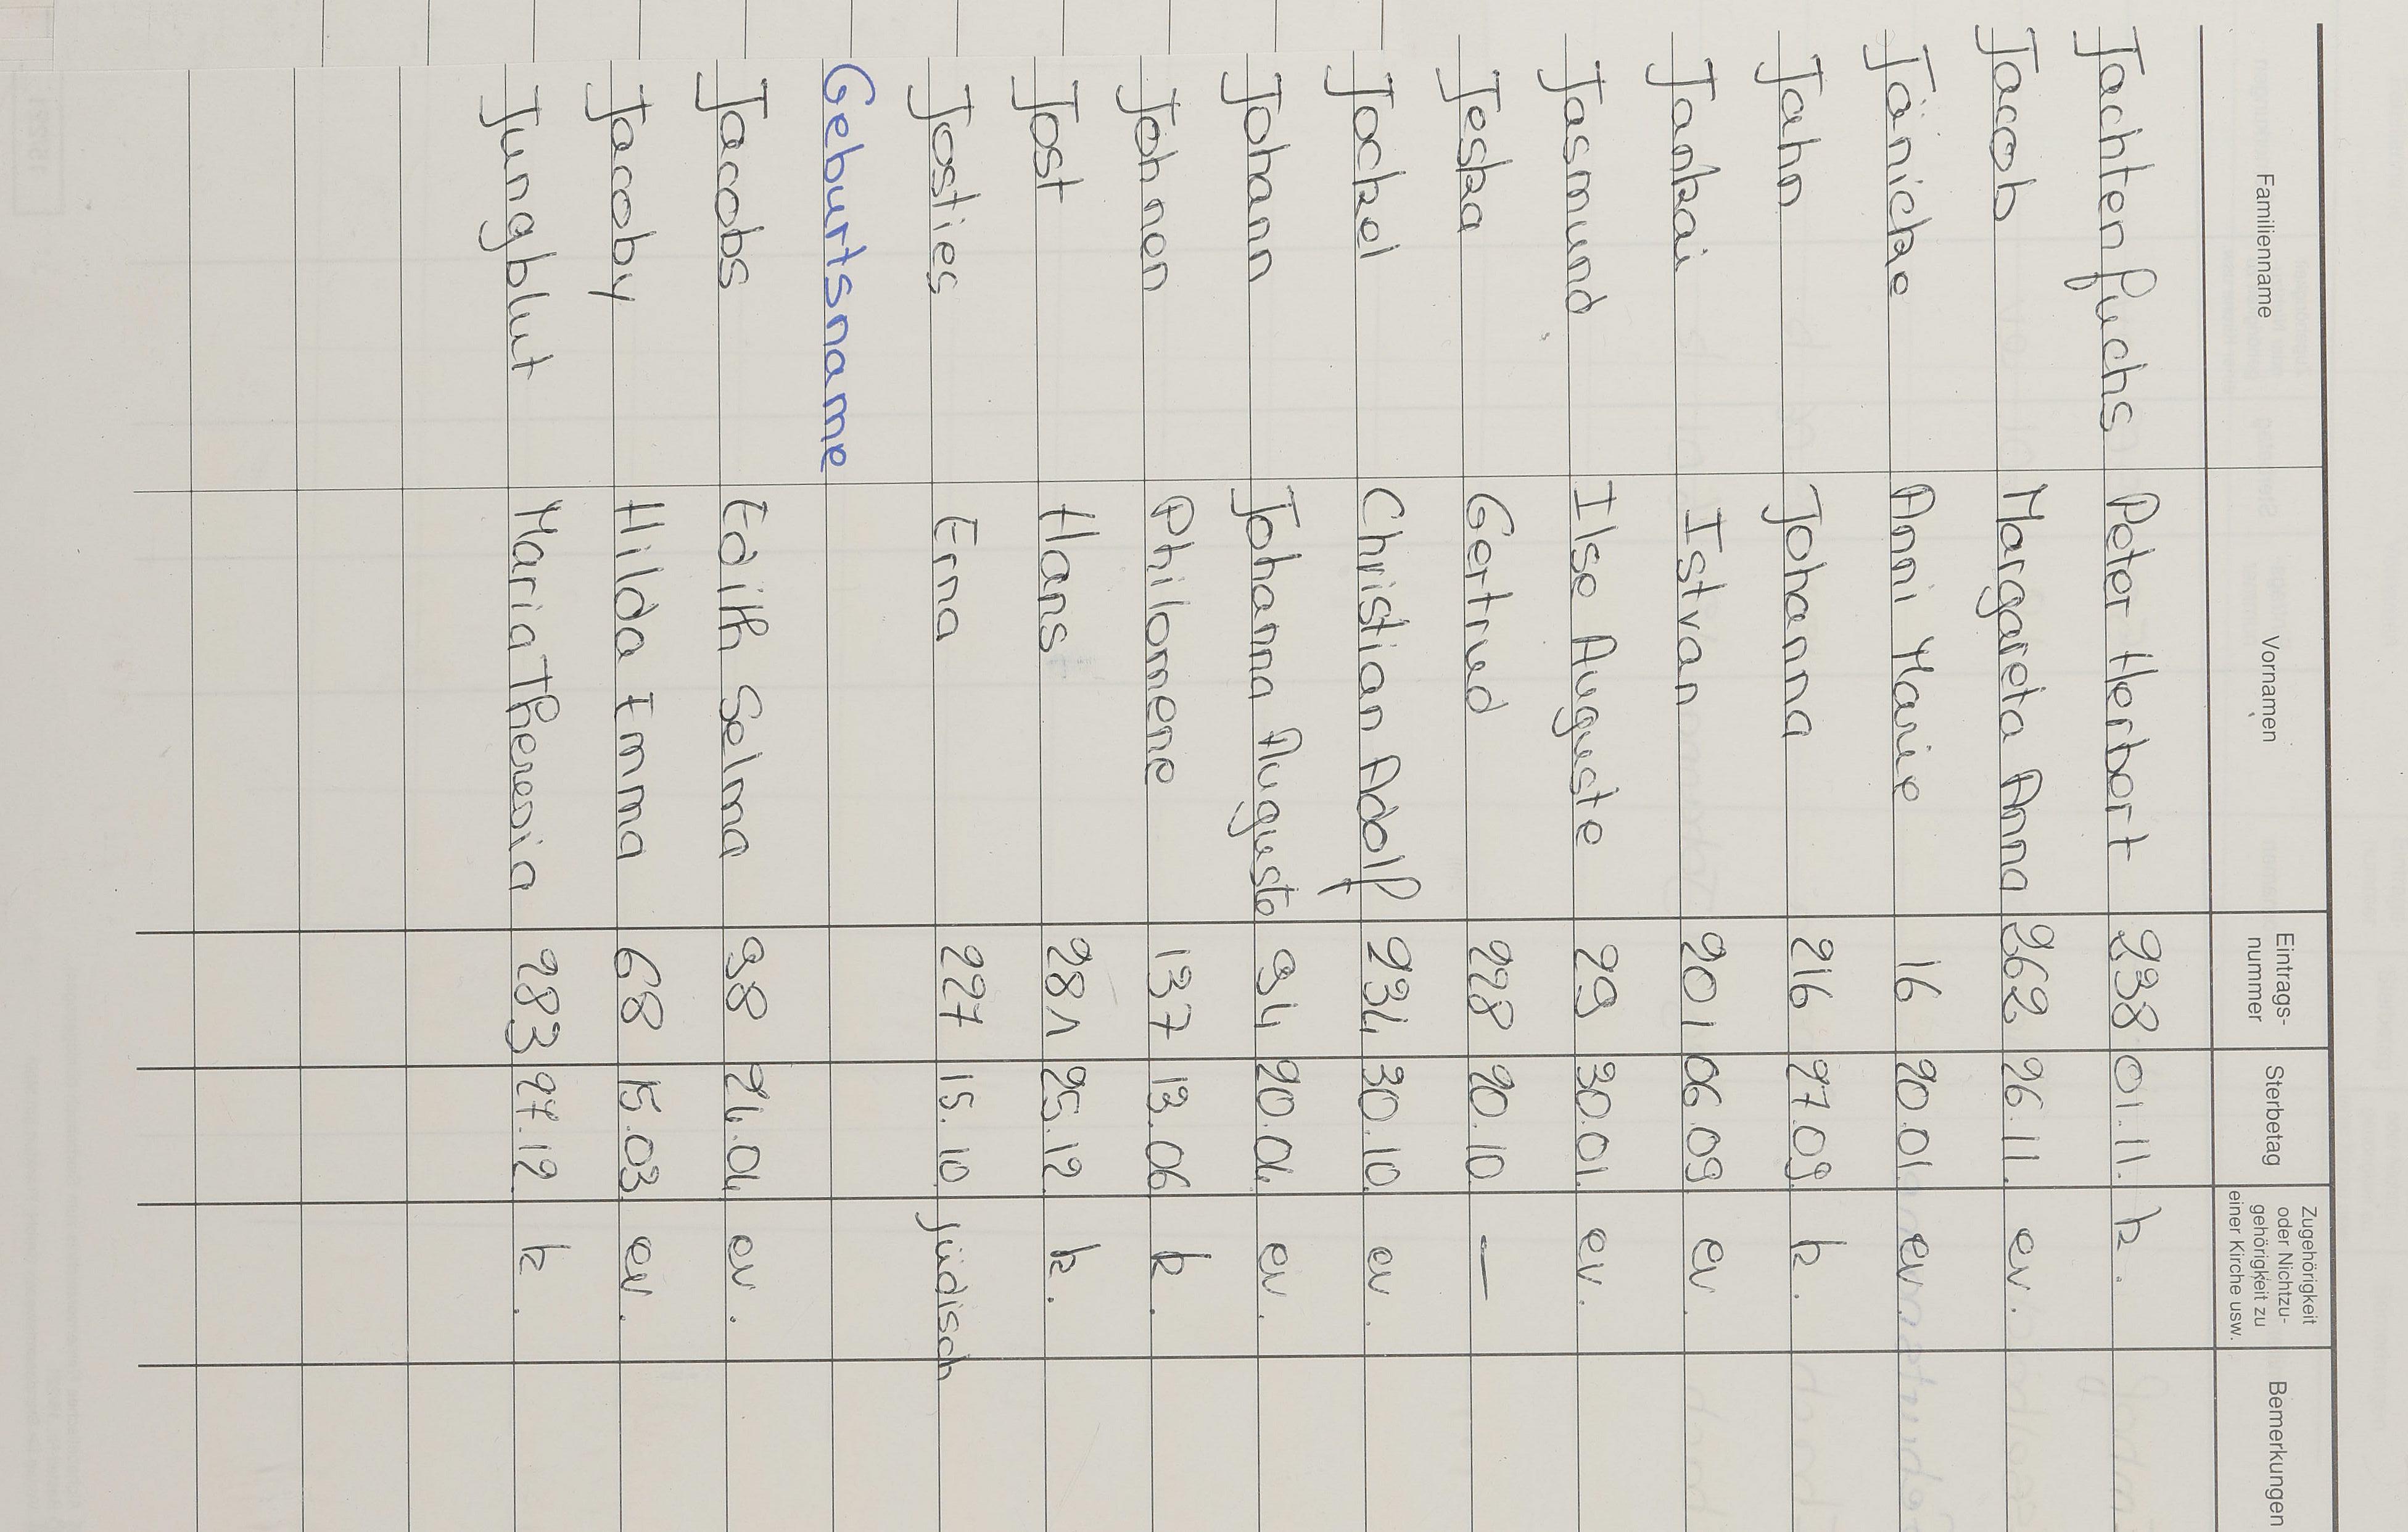 Familienname Vornamen Eintrags-nummer Sterbetag Zugehörigkeit oder Nichtzu-gehörigkeit zu einer Kirche usw. Bemerkungen
Jachtenfuchs Peter Herbert 238 01.11. k.
Jacob Margareta Anna 262 26.11. ev.
Jänicke Anni Marie 16 20.01. ev.
Jahn Johanna 216 27.09. k.
Jankai Istvan 201 06.09. ev.
Jasmund Ilse Auguste 29 30.01. ev.
Jeska Gertrud 228 20.10. —
Jockel Christian Adolf 234 30.10. ev.
Johann Johanna Auguste 94 20.04. ev.
Johnen Philomene 137 13.06. k.
Jost Hans 281 25.12. k.
Josties Erna 227 15.10. jüdisch
Geburtsname
Jacobs Edith Selma 98 24.04. ev.
Jacoby Hilda Emma 68 15.03. ev.
Jungblut Maria Theresia 283 27.12. k.